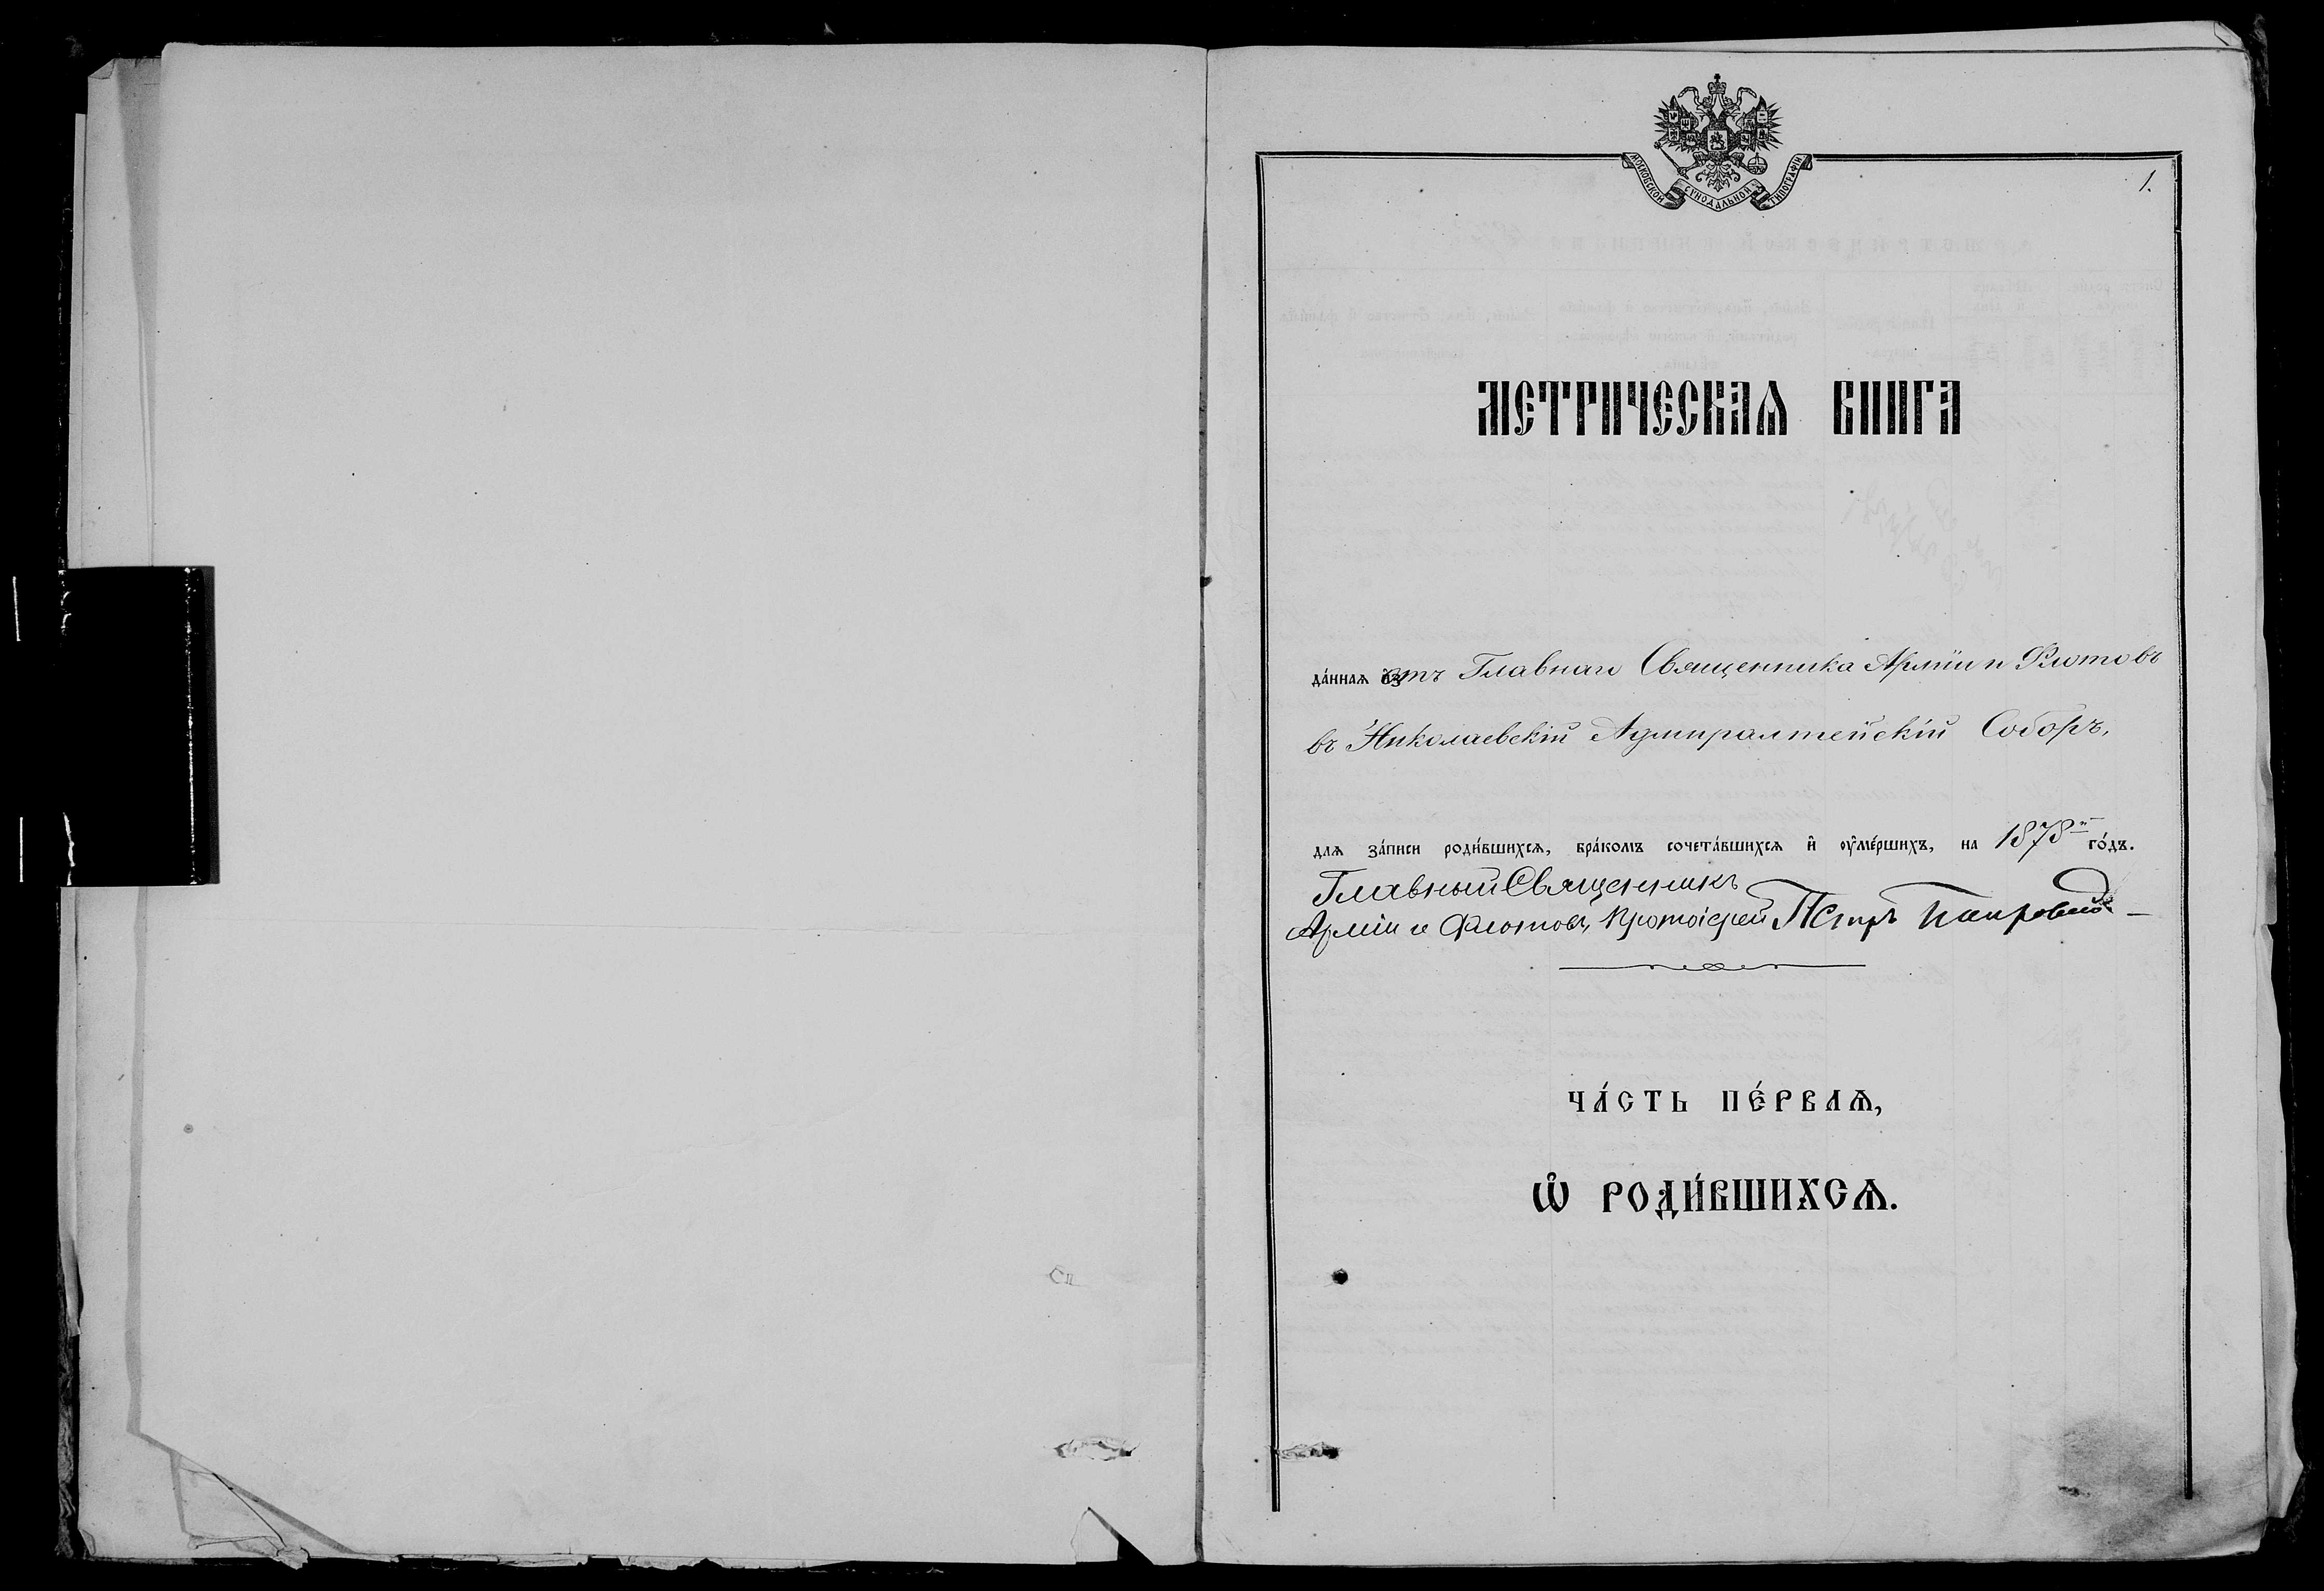 МОСКОВСКОЙ СѴНОДАЛЬНОЙ ТИПОГРАФІИ
1.
МЕТРИЧЕСКАѦ КНИГА
да́ннаѧ отъ Главнаго Священника Арміи и Флотовъ
въ Николаевскій Адмиралтейскій Соборъ,
для за́писи роди́вшихсѧ, бра́комъ сочета́вшихсѧ и҆ ᲂу҆ме́ршихъ, на 1878й го́дъ.
Главный Священникъ
Арміи и Флотовъ, Протоіерей Петръ Покровскій
ЧА́СТЬ ПЕ́РВАѦ,
Ѡ҆ РОДИ́ВШИХСѦ.